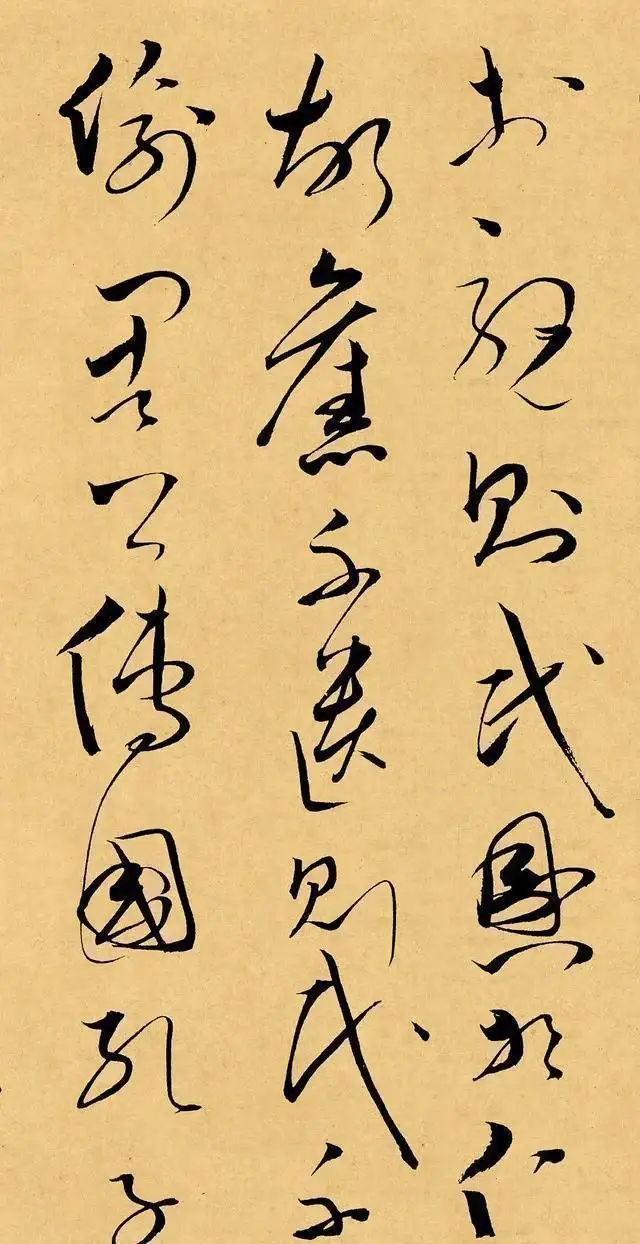 於親則民興於仁
故舊不遺則民不
偷周公傳國孔子